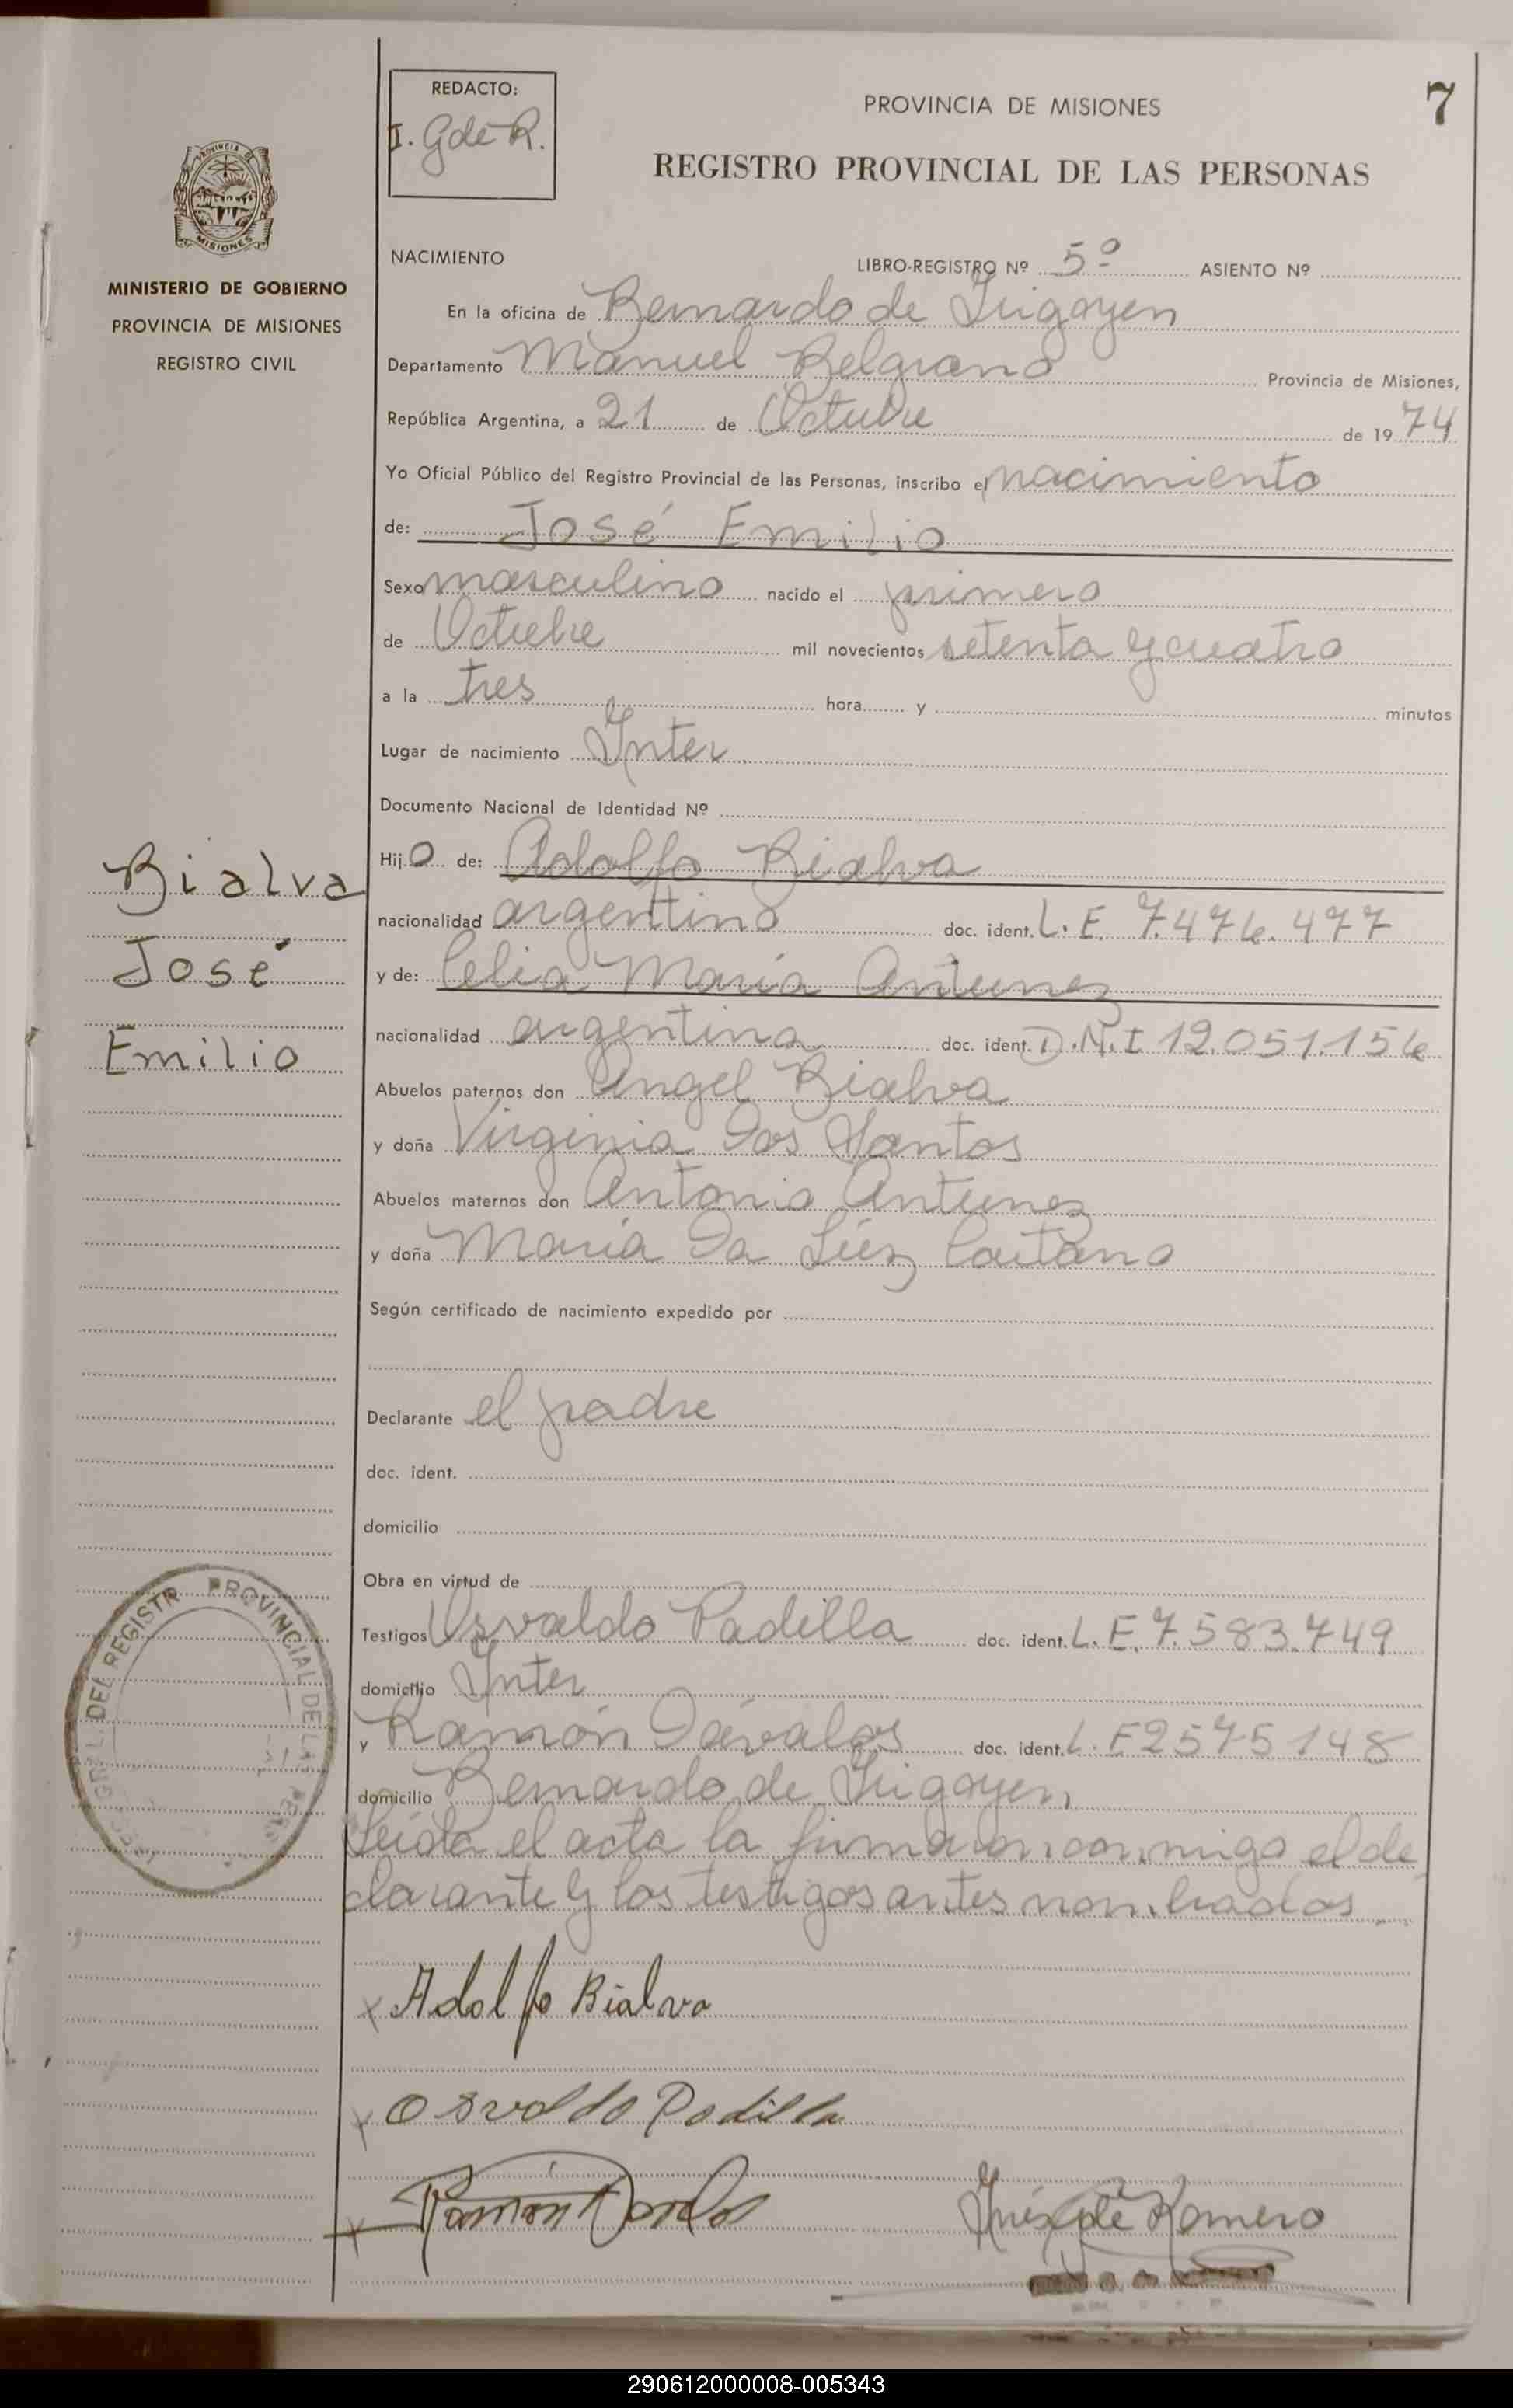 7
REDACTO:
I. G de R.
PROVINCIA DE MISIONES
REGISTRO PROVINCIAL DE LAS PERSONAS
PROVINCIA DE
MISIONES
MINISTERIO DE GOBIERNO
PROVINCIA DE MISIONES
REGISTRO CIVIL
NACIMIENTO LIBRO-REGISTRO Nº 5º ASIENTO Nº
En la oficina de Bernardo de Irigoyen
Departamento Manuel Belgrano Provincia de Misiones,
República Argentina, a 21 de Octubre de 1974
Yo Oficial Público del Registro Provincial de las Personas, inscribo el nacimiento
de: José Emilio
Sexo masculino nacido el primero
de Octubre mil novecientos setenta y cuatro
a la tres hora y minutos
Lugar de nacimiento Inter
Documento Nacional de Identidad Nº
Hijo de: Adolfo Bialva
nacionalidad argentino doc. ident. L.E. 7.476.477
y de: Celia María Antunez
nacionalidad argentina doc. ident. D.N.I 12.051.156
Abuelos paternos don Angel Bialva
y doña Virginia Dos Santos
Abuelos maternos don Antonio Antunez
y doña María Da Luz Caitano
Según certificado de nacimiento expedido por
Declarante el padre
doc. ident.
domicilio
Obra en virtud de
Testigos Osvaldo Padilla doc. ident. L.E. 7.583.749
domicilio Inter
y Ramón Dávalos doc. ident. L.E 2575148
domicilio Bernardo de Irigoyen,
Leida el acta la firmaron conmigo el de
clarante y los testigos antes nombrados
Bialva
José
Emilio
DEL REGISTR PROVINCIAL DE LAS
x Adolfo Bialva
x Osvaldo Padilla
x Ramón Davalos
Inés G de Romero
290612000008-005343